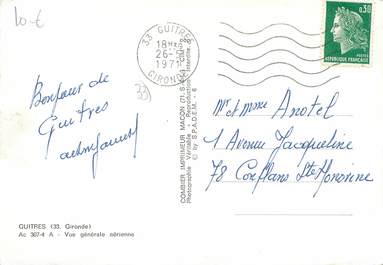 10 €
33 GUITRES
18H
26-
1971
GIRONDE
0,30
POSTES
REPUBLIQUE FRANÇAISE
33
Bonjour de
Guitres
COMBIER IMPRIMEUR MACON (71, S.-&-L.) "CIM"
Photographie Véritable - Reproduction Interdite
© by S.P.A.D.E.M. 6
Mr et Mme Anotel
1 Avenue Jacqueline
78 Conflans Ste Honorine
GUITRES (33. Gironde)
Ac 307-4 A - Vue générale aérienne